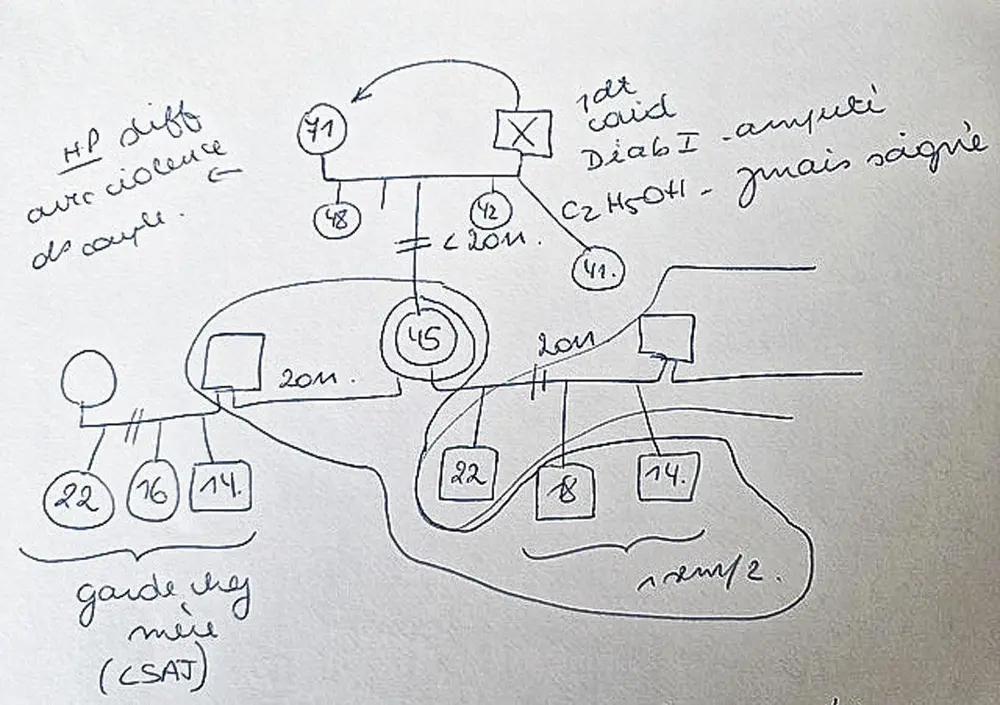 71
X
HP diff
avec violence
ds couple.
1 dt
covid
Diab I - amputé
C2H5OH - jmais soigné
48
42
< 20n.
41.
45
20n.
20n
22
16
14.
22
18
14.
garde chez
mère
1 sem/2.